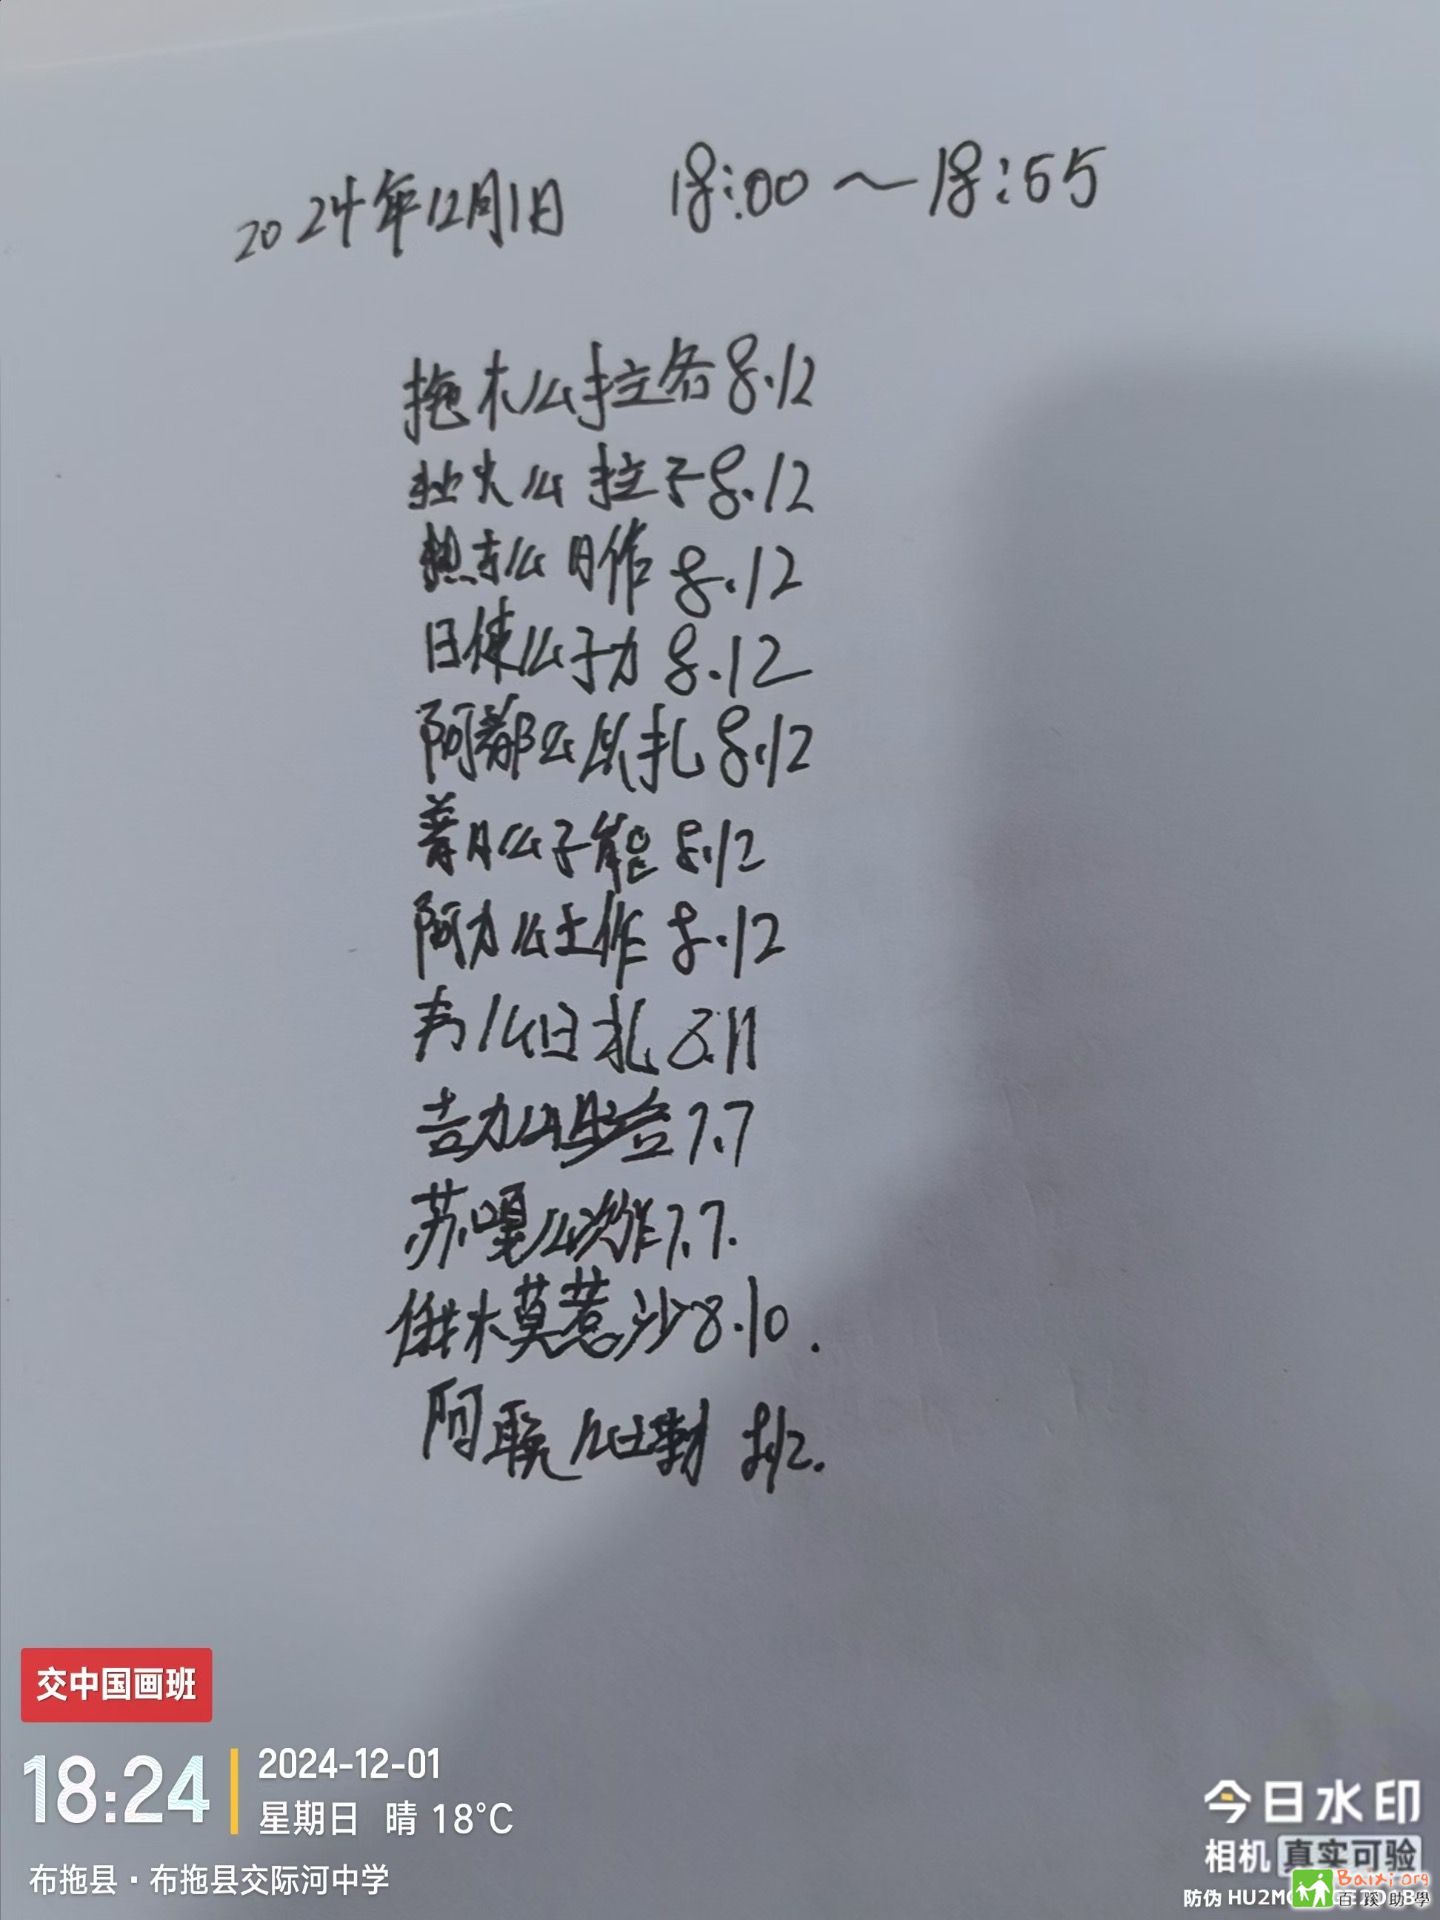 2024年12月1日 18:00～18:55
拖木么拉各8.12
扯火么拉子8.12
热么日作8.12
日使么子力8.12
阿都么从扎8.12
普月么子能8.12
阿力么土作8.12
么日扎8.11
吉力么7.7
苏嘎么次作7.7.
俄木莫惹沙8.10.
阿么
交中国画班
18:24
2024-12-01
星期日 晴 18°C
布拖县·布拖县交际河中学
今日水印
相机 真实可验
防伪 HU2M
Baixi.org
百蹊助學